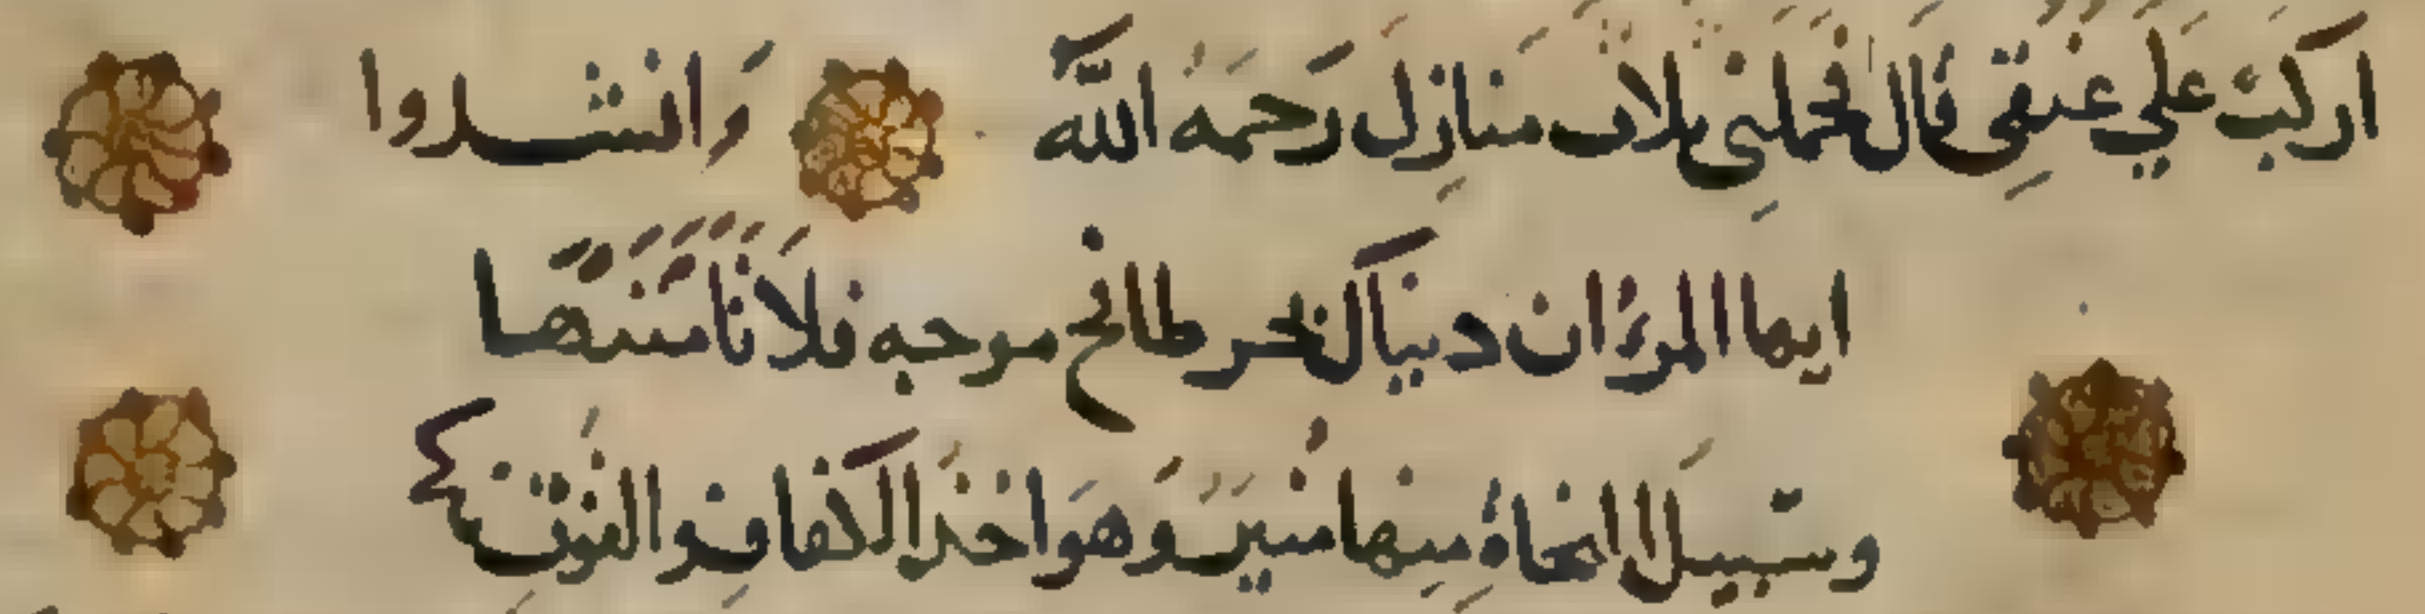 اركب على عنقي قال فحملني ثلاث منازل رحمه الله وانشدوا
ايها المرؤ ان دنياك بحر طافح موجه فلا تأمننها
وسبيل النجاة منها مبين وهو اخذ الكفاف والقوت